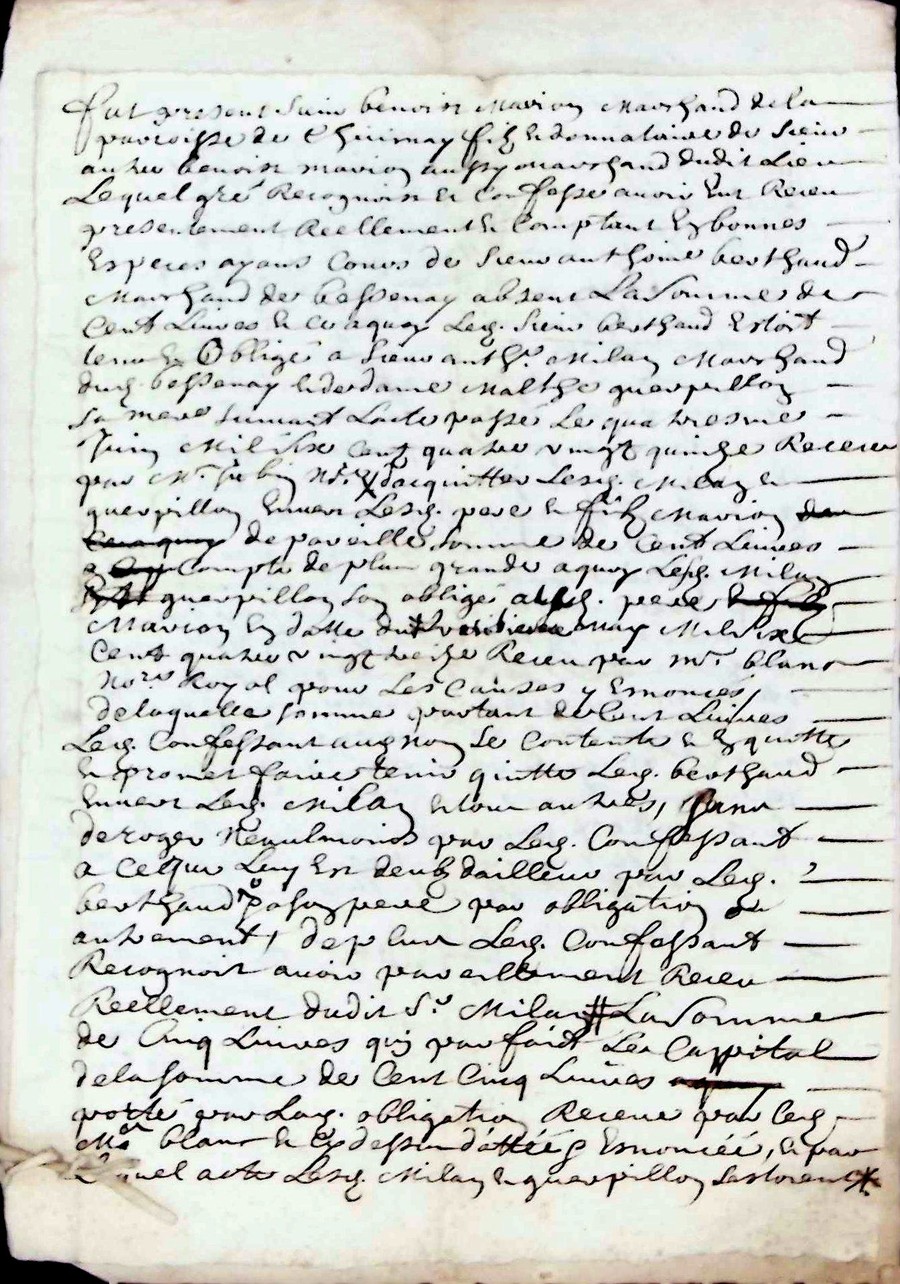 fut present Sieur benoist Marion Marchand de la
parroisse de Chuirnay filz & donnataire de Sieur
autre benoist marion aussy marchand dudit Lieu
Lequel gré Recognoist et Confesse avoir Eut Receu
presentement Reellement & Comptant En bonnes
Especes ayans Cours de Sieur anthoine berthaud
Marchand de bessenay absent La Somme de
Cent Livres & ce aquoy Led. Sieur berthaud Estoit
tenu & Obligé a Sieur anth.e Milan Marchand
dud. bessenay & de dame Malthe querpillon
Sa mere Suivant Lacte passé Le quatriesme
Juin Mil Six Cent quatre vingt quinze Receu
par M.e Jubin No.re dacquitter Lesd. Milan &
querpillon Envers Lesd. pere & filz Marion
de pareille Somme de Cent Livres
a Compte de plus grande aquoy Lesd. Milan
& querpillon Son obligés pere
Marion En datte du May Mil Six
Cent quatre vingt treize Receu par m.re blanc
No.re Royal pour Les Causes y Enoncés,
de laquelle Somme partant de Cent Livres
Led. Confessant Se Contente & En quitte
& promet faire tenir quitte Led. berthaud
Envers Led. Milan & tous autres, Sans
deroger Neaulmoins par Led. Confessant
a Ce qui Luy Est deub dailleur par Led.
berthaud & a Son pere par obligation ou
autrement, de plus Led. Confessant
Recognoit avoir pareillement Receu
Reellement dudit S.r Milan # La Somme
de Cinq Livres qui parfait Le Cappital
de la Somme de Cent Cinq Livres
porté par Lad. obligation Receue par led.
M.e blanc & Cy dessus dattée & Enoncée, & par
Lequel acte Lesd. Milan & querpillon